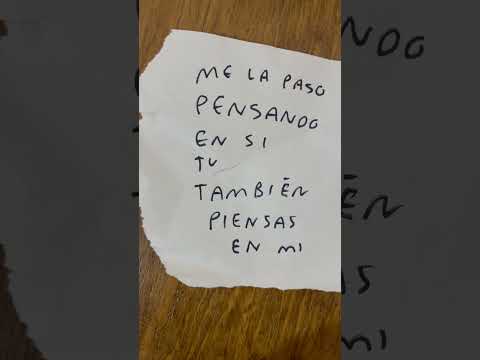 ME LA PASO
PENSANDO
EN SI
TU
TAMBIÉN
PIENSAS
EN MI